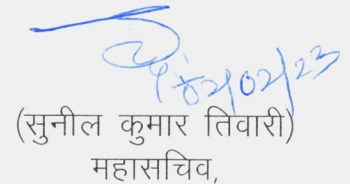 02/02/23
(सुनील कुमार तिवारी)
महासचिव,